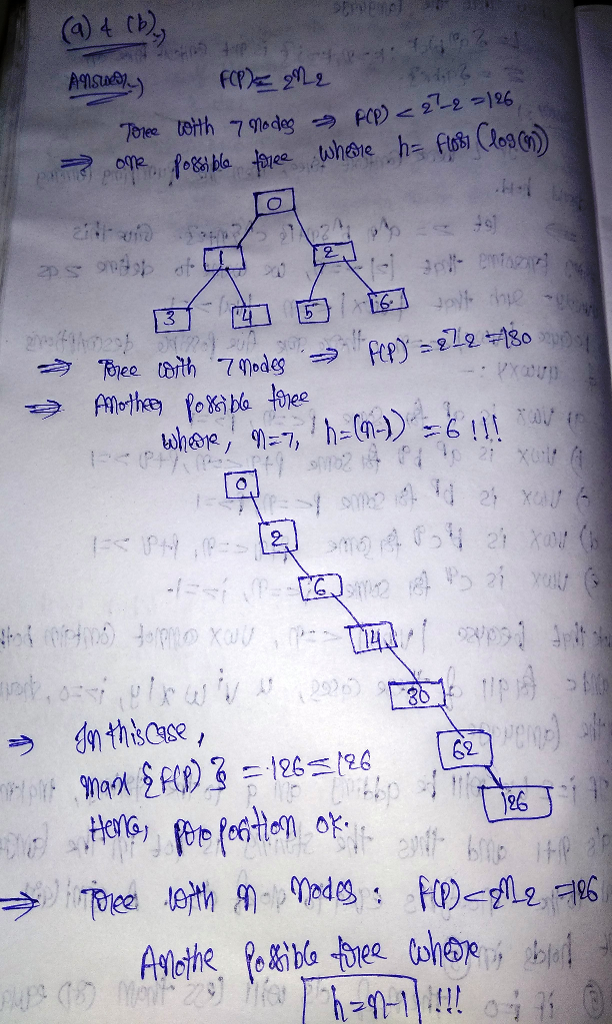 (a) & (b)
Answer:-
f(P) ≤ 2^n-2
Tree with 7 nodes ⇒ f(P) < 2^7-2 = 126
⇒ one possible tree where h = floor (log(n))
0
1 2
3 4 5 6
⇒ Tree with 7 nodes ⇒ f(P) = 2^7-2 =
⇒ Another possible tree
where, n=7, h=(n-1) = 6 !!!
0
2
6
14
30
62
126
⇒ In this case,
max {f(P)} = 126 ≤ 126
Hence, proposition ok.
⇒ Tree with n nodes : f(P) < 2^n-2 = 126
Anothe possible tree where
h = n-1 !!!